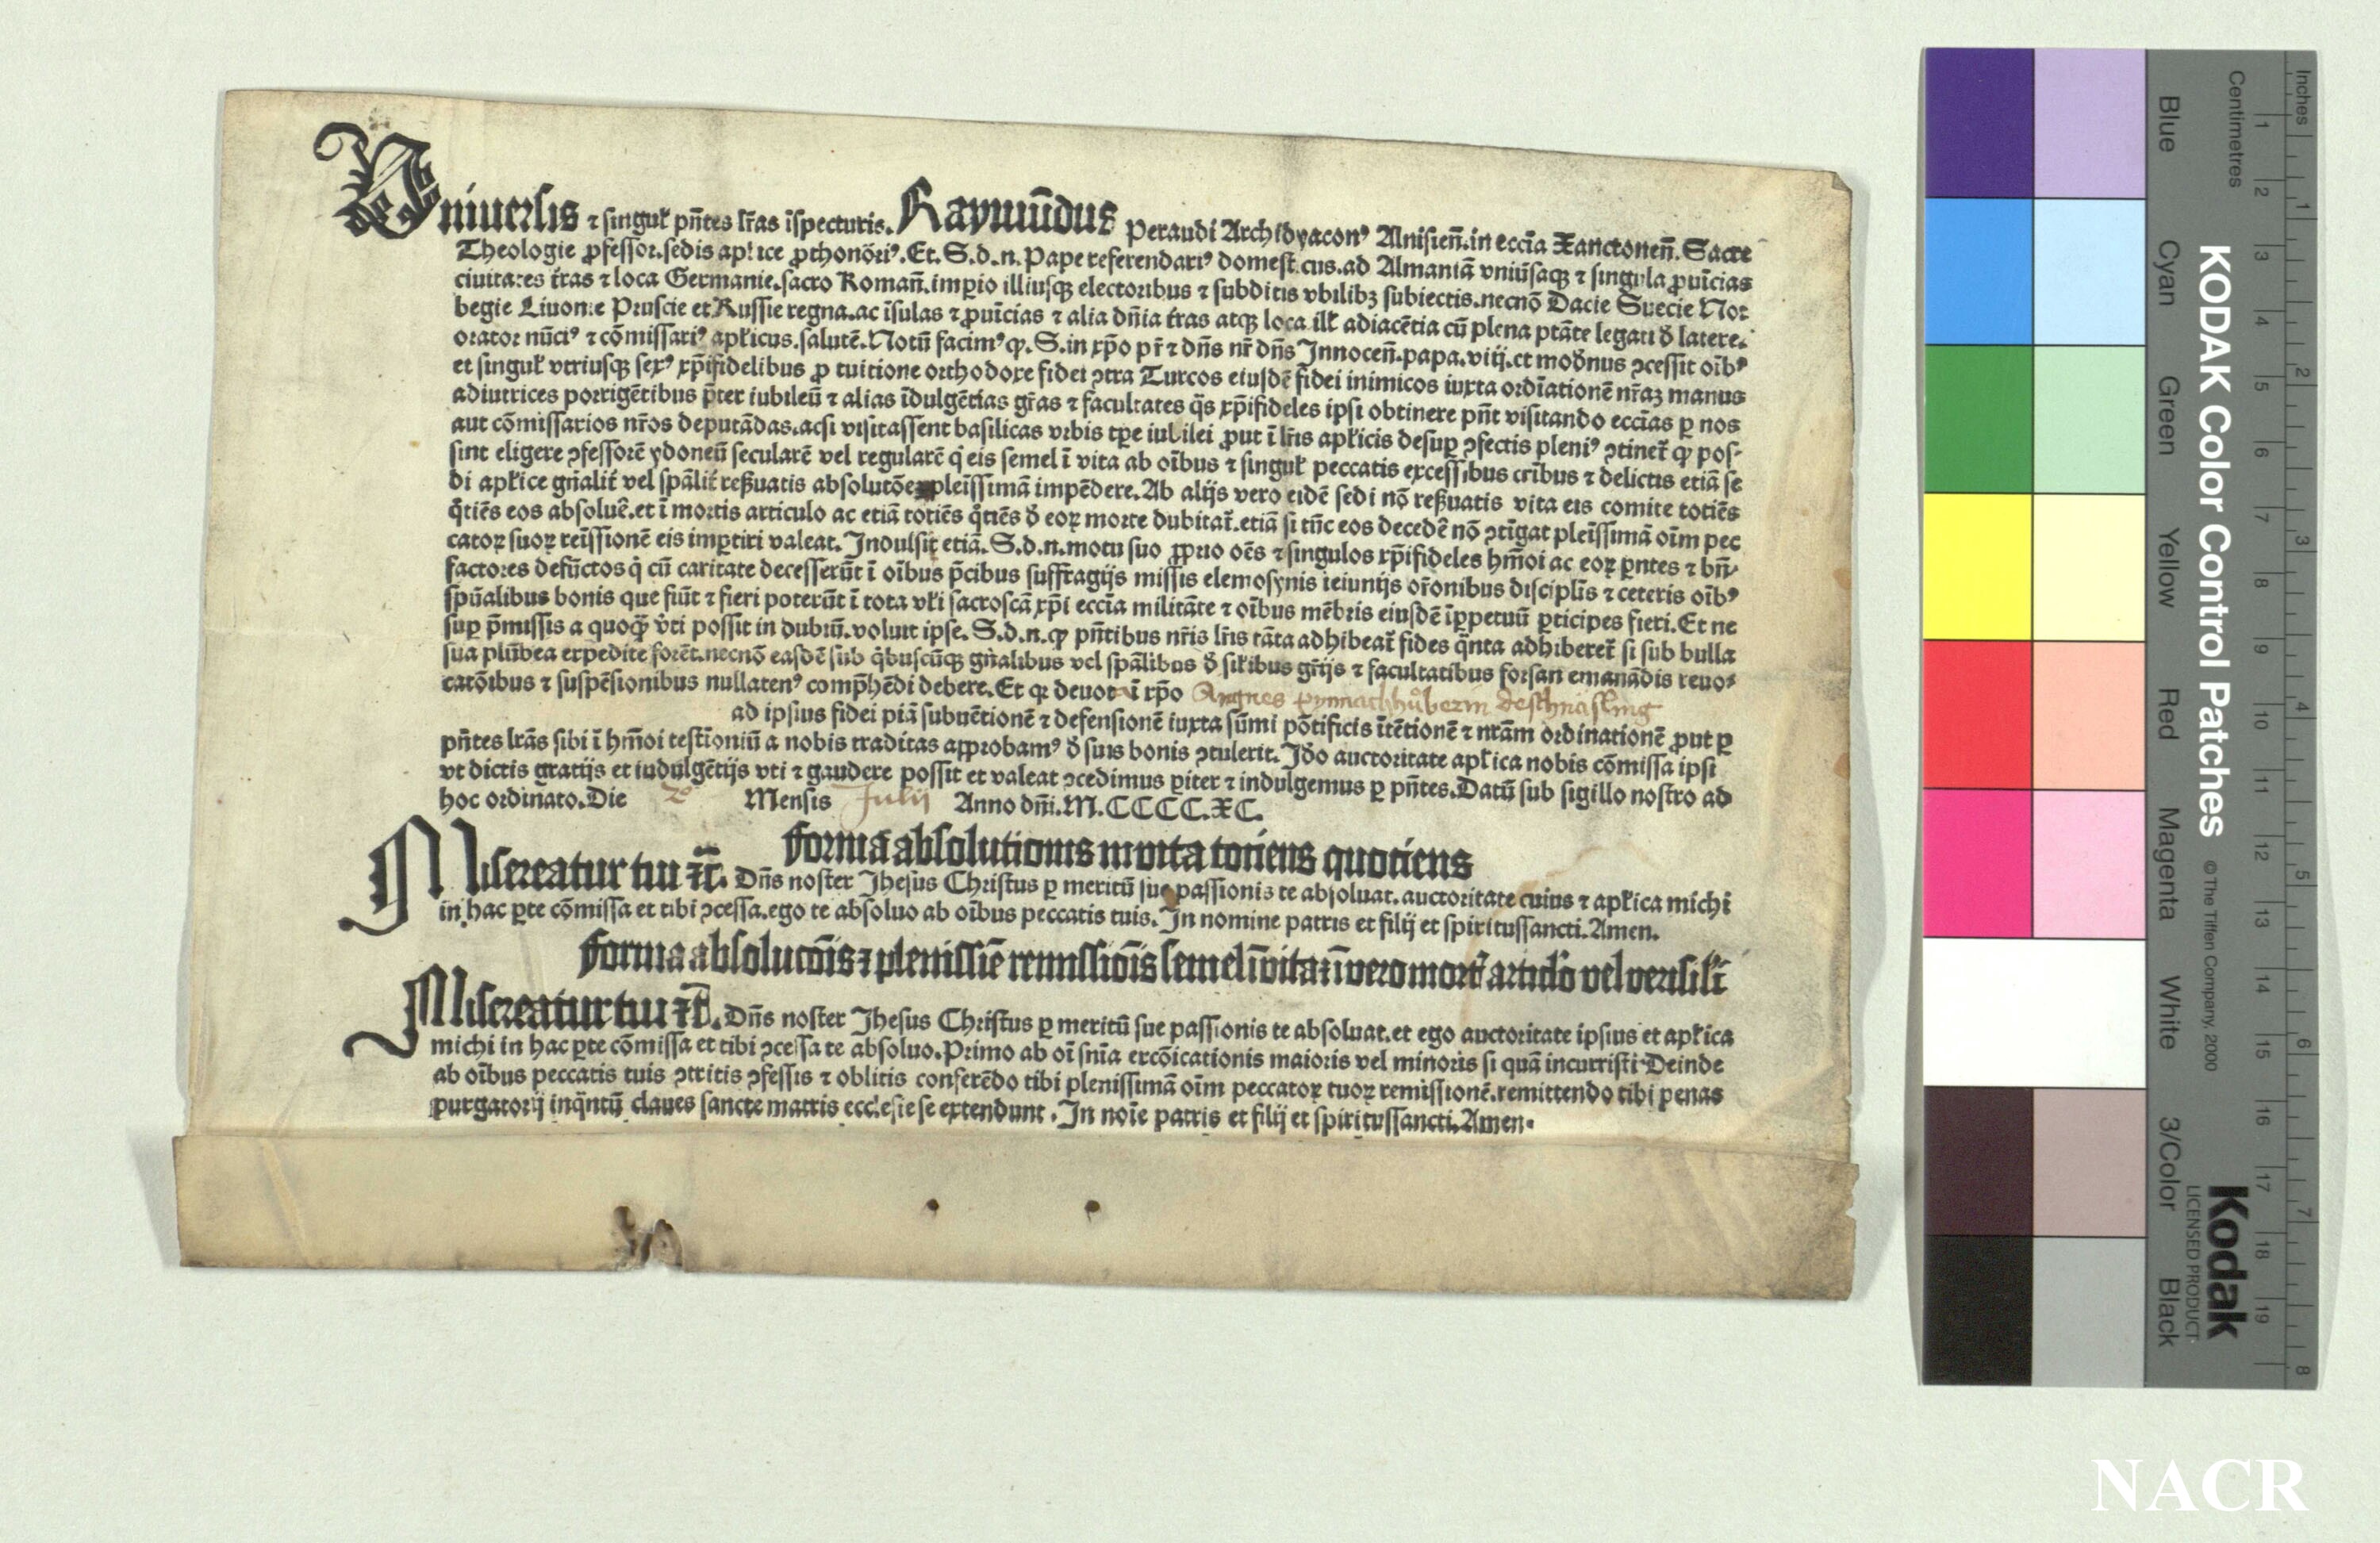 Vniuersis ⁊ singuł pñtes lr̃as ĩspecturis. Raymũdus Peraudi Archidyaconꝰ Alnisieñ. in eccl̃ia Xanctoneñ. Sacre
Theologie ꝓfessor. sedis apl̃ice ꝓthonõriꝰ. Et. S. d. n. Pape referendariꝰ domesticus. ad Almaniã vniũsaqꝫ ⁊ singula ꝓuĩcias
ciuitates tr̃as ⁊ loca Germanie. sacro Romañ. imꝑio illiusqꝫ electoribus ⁊ subditis vbilibꝫ subiectis. necnõ Dacie Suecie Nor
begie Liuonie Pruscie et Russie regna. ac ĩsulas ⁊ ꝓuĩcias ⁊ alia dñia tr̃as atqꝫ loca ill̃ adiacẽtia cũ plena ptãte legati đ latere.
orator nũciꝰ ⁊ cõmissariꝰ apłicus. salutẽ. Notũ facimꝰ ꝙ. S. in xp̃o pr̃ ⁊ dñs nr̃ dñs Innoceñ. papa. viij. et mođnus ꝯcessit oĩbꝰ
et singuł vtriusqꝫ sexꝰ xp̃ifidelibus ꝓ tuitione orthodoxe fidei ꝯtra Turcos eiusdẽ fidei inimicos iuxta ordĩationẽ nr̃aꝫ manus
adiutrices porrigẽtibus p̃ter iubileũ ⁊ alias ĩdulgẽtias gr̃as ⁊ facultates q̃s xp̃ifideles ipsi obtinere pñt visitando eccĩas ꝑ nos
aut cõmissarios nr̃os deputãdas. acsi visitassent basilicas vrbis tp̃e iubilei ꝓut ĩ lr̃is apłicis desuꝑ ꝯfectis pleniꝰ ꝯtinet̃ ꝙ pos-
sint eligere ꝯfessorẽ ydoneũ secularẽ vel regularẽ q̃ eis semel ĩ vita ab oĩbus ⁊ singuł peccatis excessibus crĩbus ⁊ delictis etiã se
di apłice gñalit̃ vel spãlit̃ reßuatis absolutõeꝫ pleĩssimã impẽdere. Ab alijs vero eidẽ sedi nõ reßuatis vita eis comite totiẽs
q̃tiẽs eos absoluẽ. et ĩ mortis articulo ac etiã totiẽs q̃tiẽs đ eoꝝ morte dubitat̃. etiã si tũc eos decedẽ nõ ꝯtĩgat pleĩssimã oĩm pec
catoꝝ suoꝝ reĩssionẽ eis imꝑtiri valeat. Indulsit etiã. S. d. n. motu suo ꝓpuo oẽs ⁊ singulos xp̃ifideles hm̃oi ac eoꝝ ꝑntes ⁊ bñ-
factores defũctos q̃ cũ caritate decesserũt ĩ oĩbus p̃cibus suffragijs missis elemosynis ieiunijs or̃onibus disciplĩs ⁊ ceteris oĩbꝰ
spũalibus bonis que fiũt ⁊ fieri poterũt ĩ tota vłi sacroscã xp̃i eccĩa militãte ⁊ oĩbus mẽbris eiusdẽ ĩꝑpetuũ ꝑticipes fieri. Et ne
suꝑ p̃missis a quoqꝫ v̓ti possit in dubiũ. voluit ipse. S. d. n. ꝙ pñtibus nr̃is lr̃is tãta adhibeat̃ fides q̃nta adhiberet̃ si sub bulla
sua plũbea expedite forẽt. necnõ easdẽ sub q̃buscũqꝫ gñalibus vel spãlibus đ siłibus gr̃ijs ⁊ facultatibus forsan emanãdis reuo-
catõibus ⁊ suspẽsionibus nullatenꝰ comp̃hẽdi debere. Et qꝛ deuota ĩ xp̃o Angnes
ad ipsius fidei piã subuẽtionẽ ⁊ defensionẽ iuxta sũmi põtificis ĩtẽtionẽ ⁊ nr̃am ordinationẽ ꝓut ꝑ
pñtes lr̃as sibi ĩ hm̃oi testĩoniũ a nobis traditas aꝓbamꝰ đ suis bonis ꝯtulerit. Iđo auctoritate apłica nobis cõmissa ipsi
vt dictis gratijs et indulgẽtijs vti ⁊ gaudere possit et valeat ꝯcedimus ꝑiter ⁊ indulgemus ꝑ pñtes. Datũ sub sigillo nostro ad
hoc ordinato. Die Mensis Julij Anno dñi. M. CCCC. XC.
forma absolutionis in vita totiens quotiens
Misereatur tui ⁊c̃. Dñs noster Jhesus Christus ꝑ meritũ sue passionis te absoluat. auctoritate cuius ⁊ apłica michi
in hac ꝑte cõmissa et tibi ꝯcessa. ego te absoluo ab oĩbus peccatis tuis. In nomine patris et filij et spiritussancti. Amen.
forma absolucõis ⁊ plenissiẽ remissiõis semel ĩ vita ⁊ ĩ vero mort̃ articlo vel verisiłi
Misereatur tui ⁊c̃. Dñs noster Jhesus Christus ꝑ meritũ sue passionis te absoluat. et ego auctoritate ipsius et apłica
michi in hac ꝑte cõmissa et tibi ꝯcessa te absoluo. Primo ab oĩ snĩa excõicationis maioris vel minoris si quã incurristi Deinde
ab oĩbus peccatis tuis ꝯtritis ꝯfessis ⁊ oblitis conferẽdo tibi plenissimã oĩm peccatoꝝ tuoꝝ remissionẽ. remittendo tibi penas
purgatorij inq̃ntũ claues sancte matris ecclesie se extendunt. In noĩe patris et filij et spiritussancti. Amen.
Inches 1 2 3 4 5 6 7 8
Centimetres 1 2 3 4 5 6 7 8 9 10 11 12 13 14 15 16 17 18 19
KODAK Color Control Patches © The Tiffen Company, 2000 Kodak
LICENSED PRODUCT
Blue Cyan Green Yellow Red Magenta White 3/Color Black
NACR